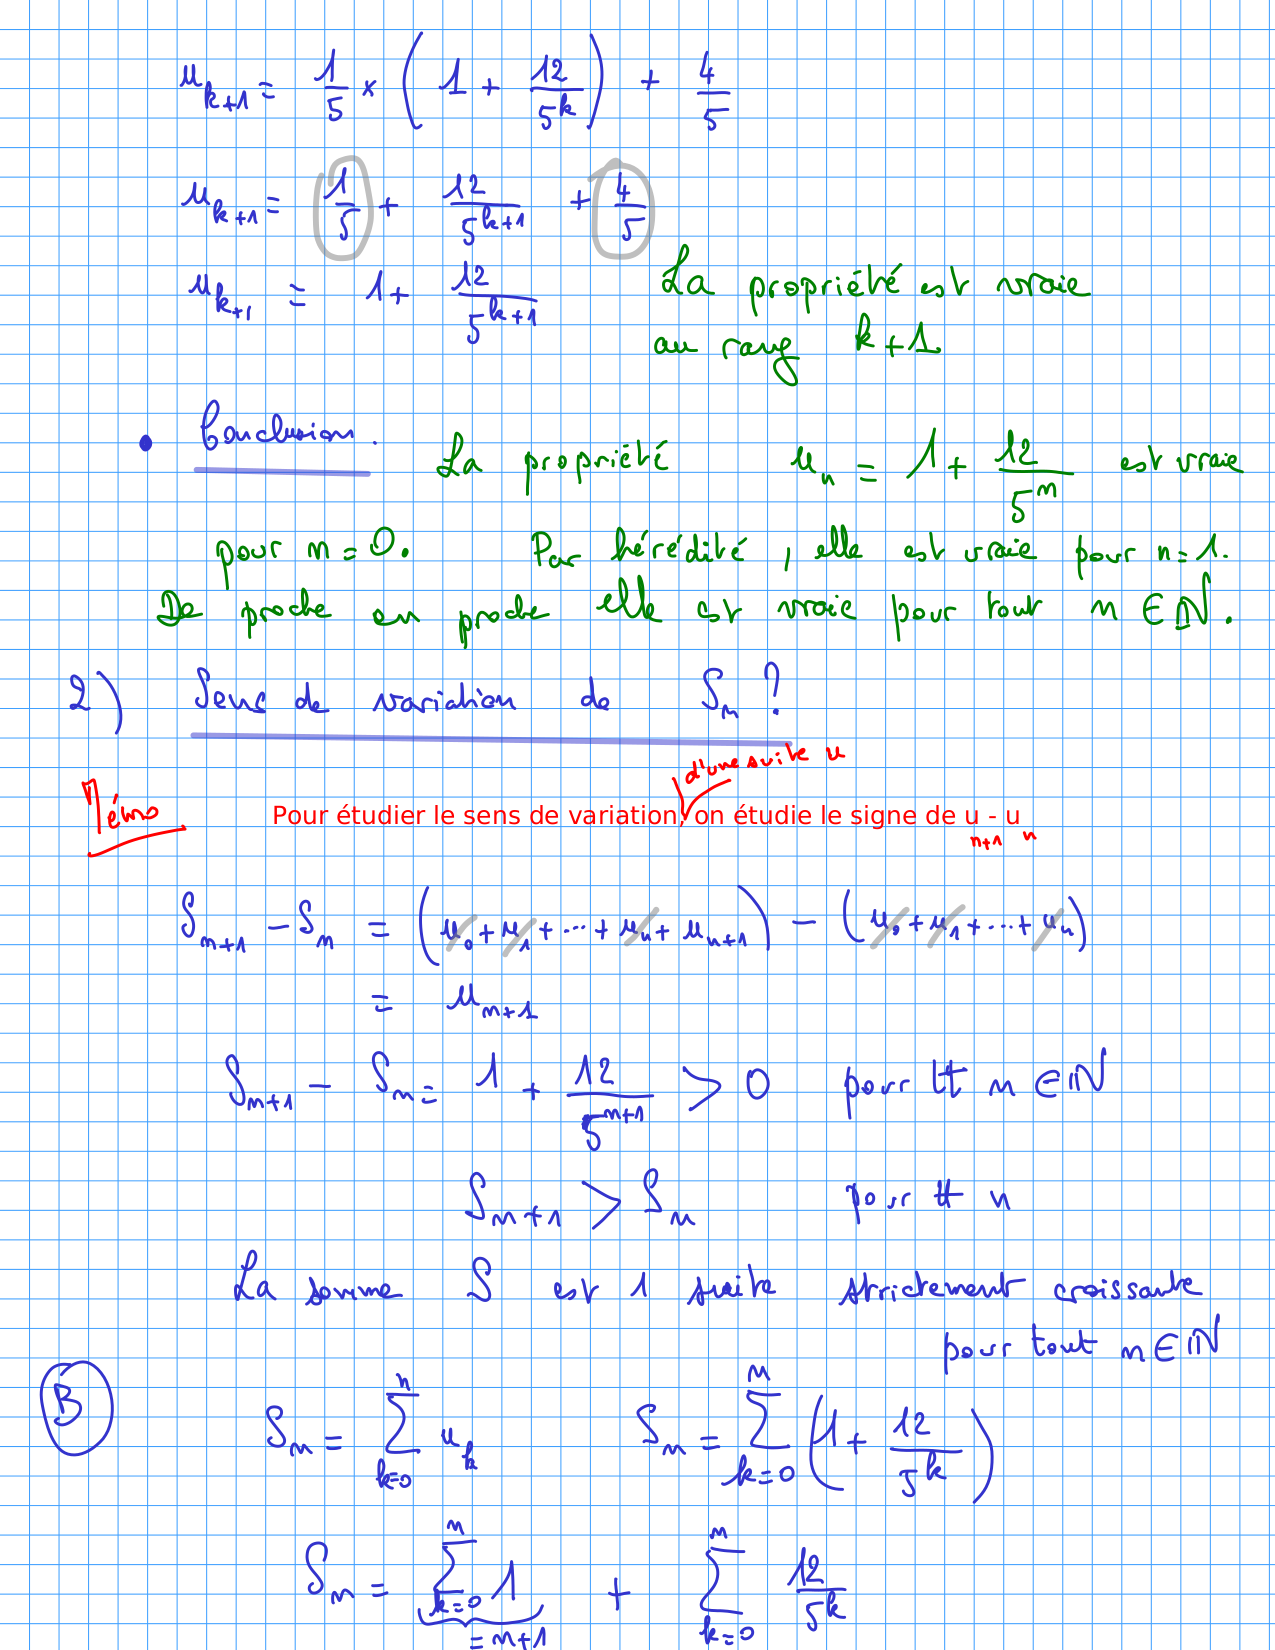 u_{k+1} = 1/5 × (1 + 12/5^k) + 4/5
u_{k+1} = 1/5 + 12/5^{k+1} + 4/5
u_{k+1} = 1 + 12/5^{k+1} La propriété est vraie
au rang k+1.
• Conclusion. La propriété u_n = 1 + 12/5^n est vraie
pour n = 0. Par hérédité, elle est vraie pour n = 1.
De proche en proche elle est vraie pour tout n ∈ ℕ.
2) Sens de variation de S_n ?
d'une suite u
Mémo Pour étudier le sens de variation, on étudie le signe de u_{n+1} - u_n
S_{n+1} - S_n = (u_0 + u_1 + ... + u_n + u_{n+1}) - (u_0 + u_1 + ... + u_n)
= u_{n+1}
S_{n+1} - S_n = 1 + 12/5^{n+1} > 0 pour tt n ∈ ℕ
S_{n+1} > S_n pour tt n
La somme S est 1 suite strictement croissante
pour tout n ∈ ℕ
B S_n = ∑_{k=0}^{n} u_k S_n = ∑_{k=0}^{n} (1 + 12/5^k)
S_n = ∑_{k=0}^{n} 1 + ∑_{k=0}^{n} 12/5^k
= n+1